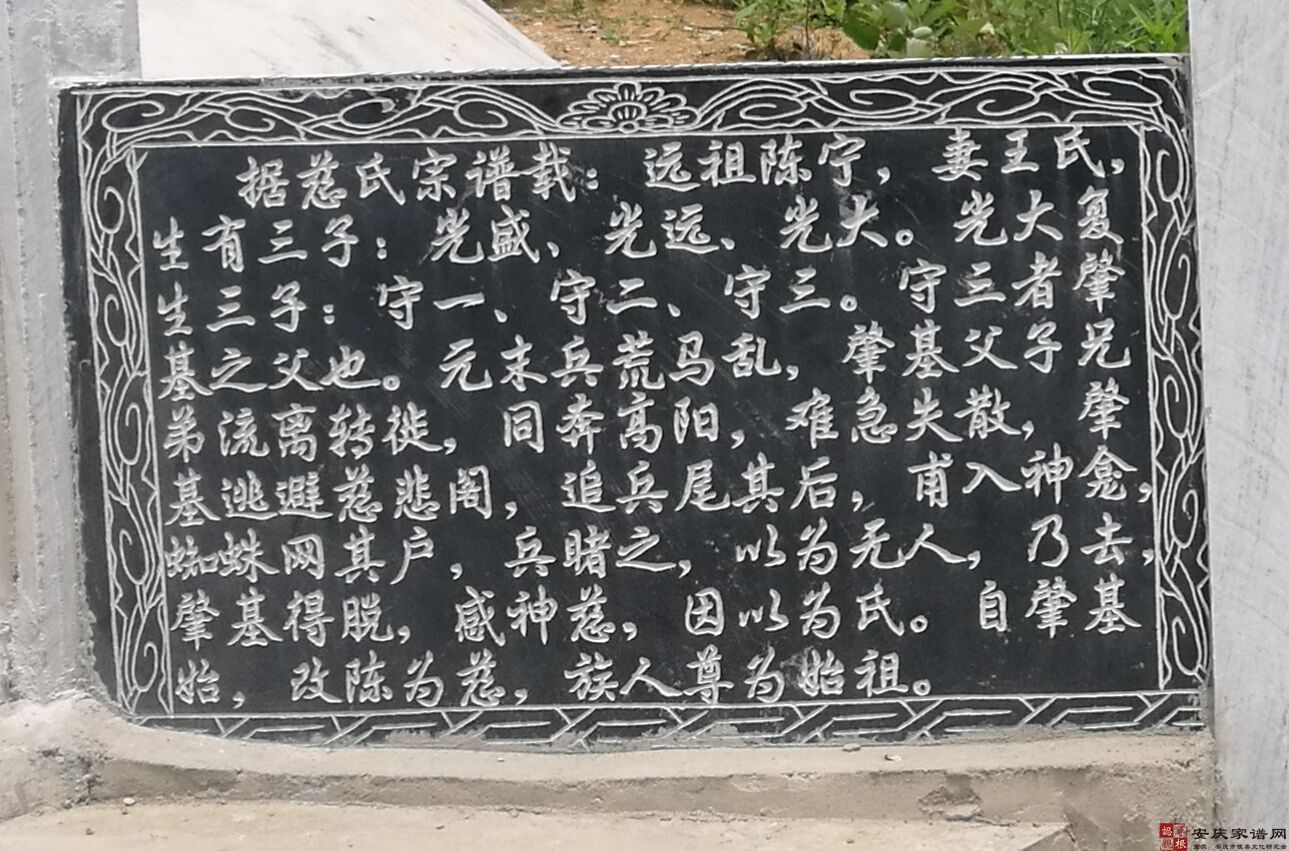 据慈氏宗谱载：远祖陈宁，妻王氏，
生有三子：光盛、光远、光大。光大复
生三子：守一、守二、守三。守三者肇
基之父也。元末兵荒马乱，肇基父子兄
弟流离转徙，同奔高阳，难急失散，肇
基逃避慈悲阁，追兵尾其后，甫入神龛，
蜘蛛网其户，兵睹之，以为无人，乃去，
肇基得脱，感神慈，因以为氏。自肇基
始，改陈为慈，族人尊为始祖。
安庆家谱网